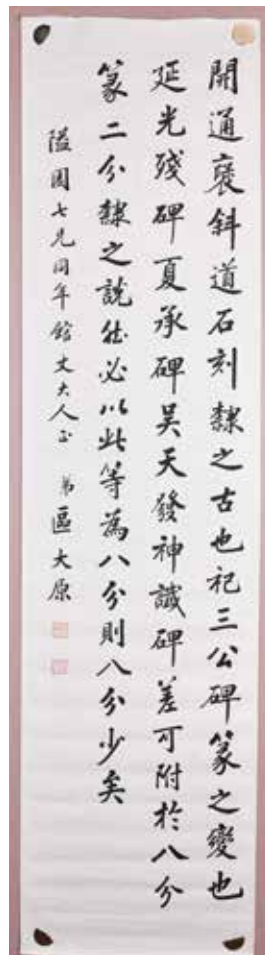 開通褒斜道石刻隸之古也祀三公碑篆之變也
延光殘碑夏承碑吳天發神讖碑差可附於八分
篆二分隸之說然必以此等為八分則八分少矣
隘園七兄同年館丈大人正 弟區大原